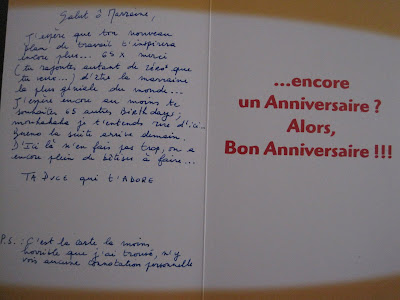 Salut ô Marraine,
J'espère que ton nouveau
plan de travail t'inspirera
encore plus... 65 x merci
(tu rajoutes autant de zéros que
tu veux...) d'être la marraine
la plus géniale du monde...
J'espère encore au moins te
souhaiter 65 autres Birthdays;
mouhahaha je t'entends rire d'ici...
la suite arrive demain.
D'ici là n'en fais pas trop, on a
encore plein de bêtises à faire...
TA PUCE qui t'ADORE
P.S.: C'est la carte la moins
horrible que j'ai trouvé, n'y
vois aucune connotation personnelle
...encore
un Anniversaire ?
Alors,
Bon Anniversaire !!!